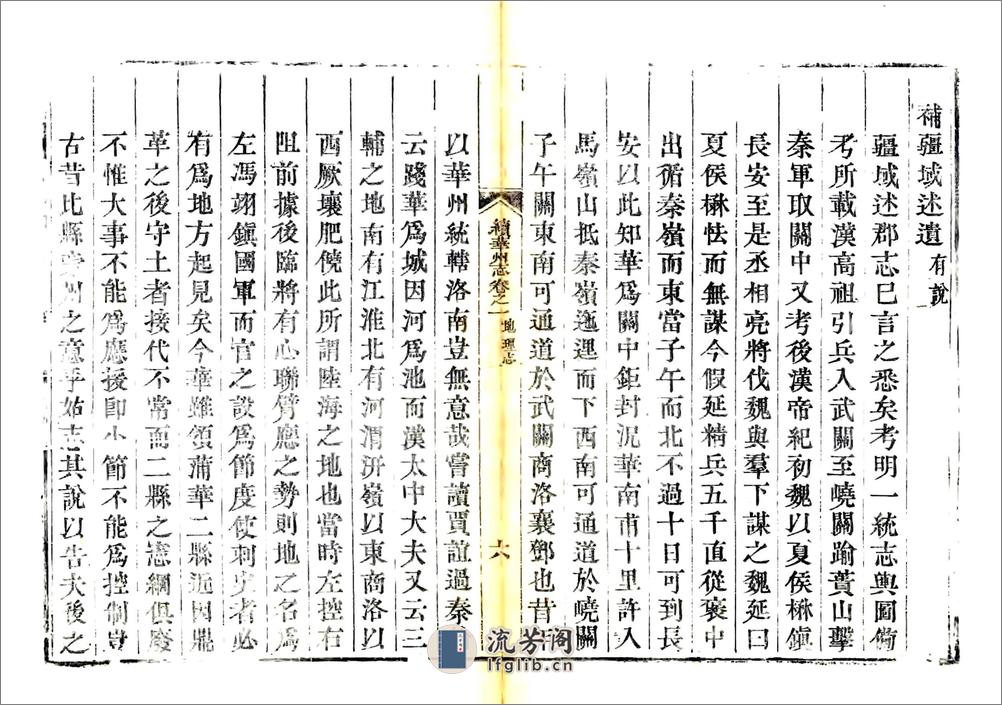 補疆域述遺有說
疆域述郡志已言之悉矣考明一統志輿圖備
考所載漢高祖引兵入武關至嶢關踰蕢山擊
秦軍取關中又考後漢帝紀初魏以夏侯楙鎮
長安至是丞相亮將伐魏與羣下謀之魏延曰
夏侯楙怯而無謀今假延精兵五千直從褒中
出循秦嶺而東當子午而北不過十日可到長
安以此知華爲關中鉅封況華南甫十里許入
馬嶺山抵秦嶺迤邐而下西南可通道於嶢關
子午關東南可通道於武關商洛襄鄧也昔
續華州志卷之一 地理志 六
以華州統轄洛南豈無意哉嘗讀賈誼過秦
云踐華爲城因河爲池而漢太中大夫又云三
輔之地南有江淮北有河渭汧嶺以東商洛以
西厥壤肥饒此所謂陸海之地也當時左控右
阻前據後臨將有心聯臂應之勢則地之名爲
左馮翊鎮國軍而官之設爲節度使刺史者必
有爲地方起見矣今華雖領蒲華二縣近因鼎
革之後守土者接代不常而二縣之憲綱俱廢
不惟大事不能爲應援卽小節不能爲控制豈
古昔此縣州之意乎姑志其說以告夫後之
流芳阁
lfglib.cn